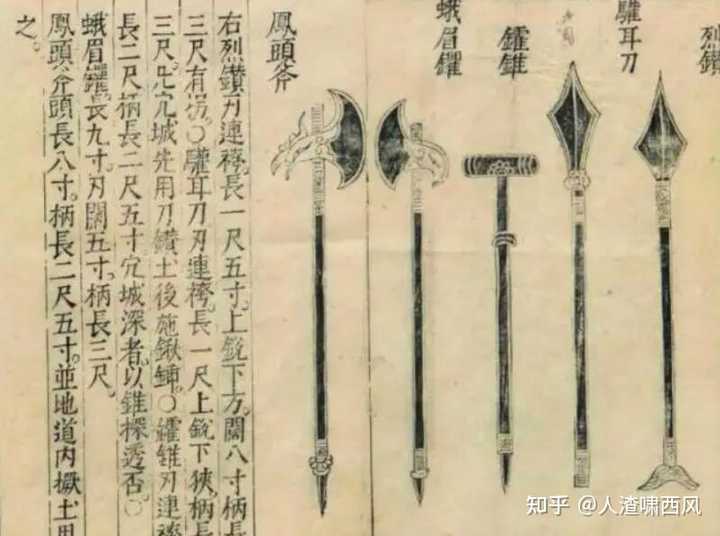 烈鑽
驢耳刀
钁錐
蛾眉钁
鳳頭斧
右烈鑽刃連袴。長一尺五寸。上銳下方。闊八寸柄長
三尺有拐。〇驢耳刀刃連袴。長一尺上銳下狹。柄長
三尺。凡穴城先用刀鑽土後施鍬鍤。〇钁錐刃連袴
長二尺柄長二尺五寸穴城深者。以錐探透否。〇
蛾眉钁。長九寸。刃闊五寸。柄長三尺。
鳳頭斧頭長八寸。柄長二尺五寸。並地道內橛土用
之。
知乎 @人渣啸西风